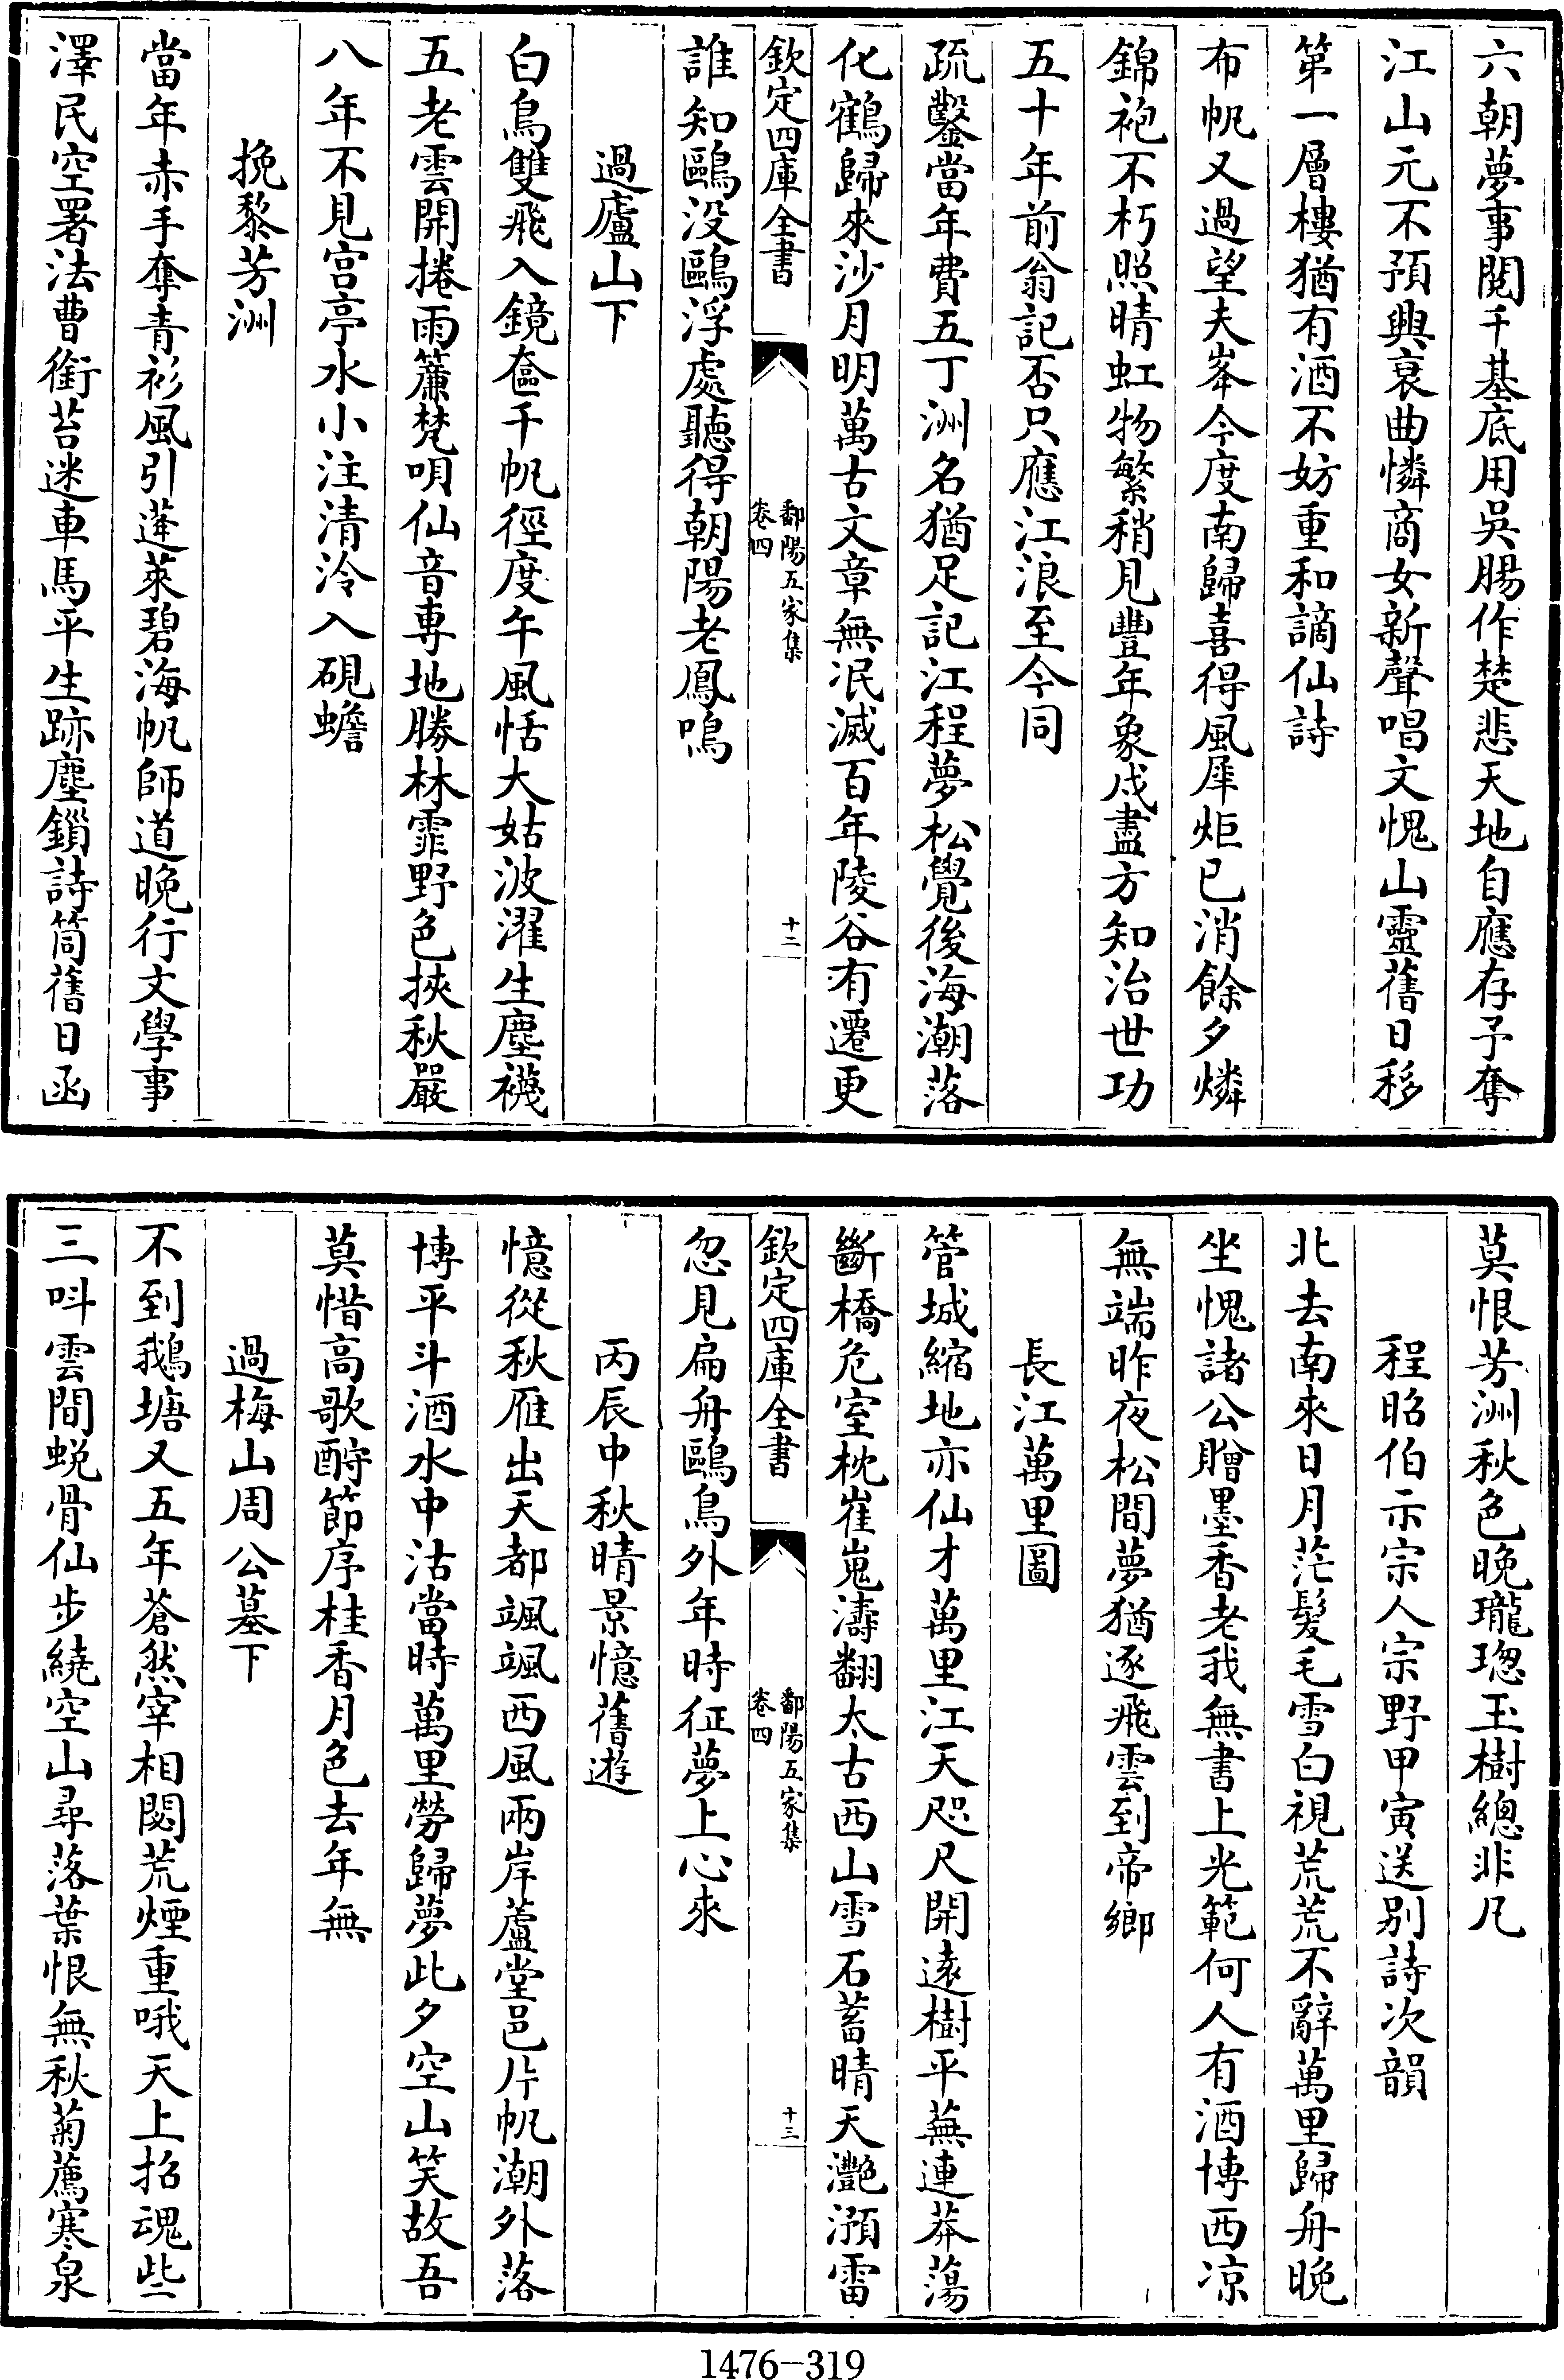 六朝夢事閱千基底用吳腸作楚悲天地自應存予奪
江山元不預興衰曲憐商女新聲唱文愧山靈舊日移
第一層樓猶有酒不妨重和謫仙詩
布帆又過望夫峯今度南歸喜得風犀炬已消餘夕燐
錦袍不朽照晴虹物繁稍見豐年象戍盡方知治世功
五十年前翁記否只應江浪至今同
疏鑿當年費五丁洲名猶足記江程夢松覺後海潮落
化鶴歸來沙月明萬古文章無泯滅百年陵谷有遷更
欽定四庫全書
鄱陽五家集
卷四
十二
誰知鷗沒鷗浮處聽得朝陽老鳳鳴
過廬山下
白鳥雙飛入鏡奩千帆徑度午風恬大姑波濯生塵襪
五老雲開捲雨簾梵唄仙音專地勝林霏野色挾秋嚴
八年不見宮亭水小注清泠入硯蟾
挽黎芳洲
當年赤手奪青衫風引蓬萊碧海帆師道晚行文學事
澤民空署法曹銜苔迷車馬平生跡塵鎖詩筒舊日函
莫恨芳洲秋色晚瓏璁玉樹總非凡
程昭伯示宗人宗野甲寅送別詩次韻
北去南來日月茫髮毛雪白視荒荒不辭萬里歸舟晚
坐愧諸公贈墨香老我無書上光範何人有酒博西涼
無端昨夜松間夢猶逐飛雲到帝鄉
長江萬里圖
管城縮地亦仙才萬里江天咫尺開遠樹平蕪連莽蕩
斷橋危室枕崔嵬濤翻太古西山雪石蓄晴天灩澦雷
欽定四庫全書
鄱陽五家集
卷四
十三
忽見扁舟鷗鳥外年時征夢上心來
丙辰中秋晴景憶舊遊
憶從秋雁出天都颯颯西風兩岸蘆堂邑片帆潮外落
博平斗酒水中沽當時萬里勞歸夢此夕空山笑故吾
莫惜高歌酹節序桂香月色去年無
過梅山周公墓下
不到鵝塘又五年蒼然宰相閟荒煙重哦天上招魂些
三叫雲間蛻骨仙步繞空山尋落葉恨無秋菊薦寒泉
1476-319